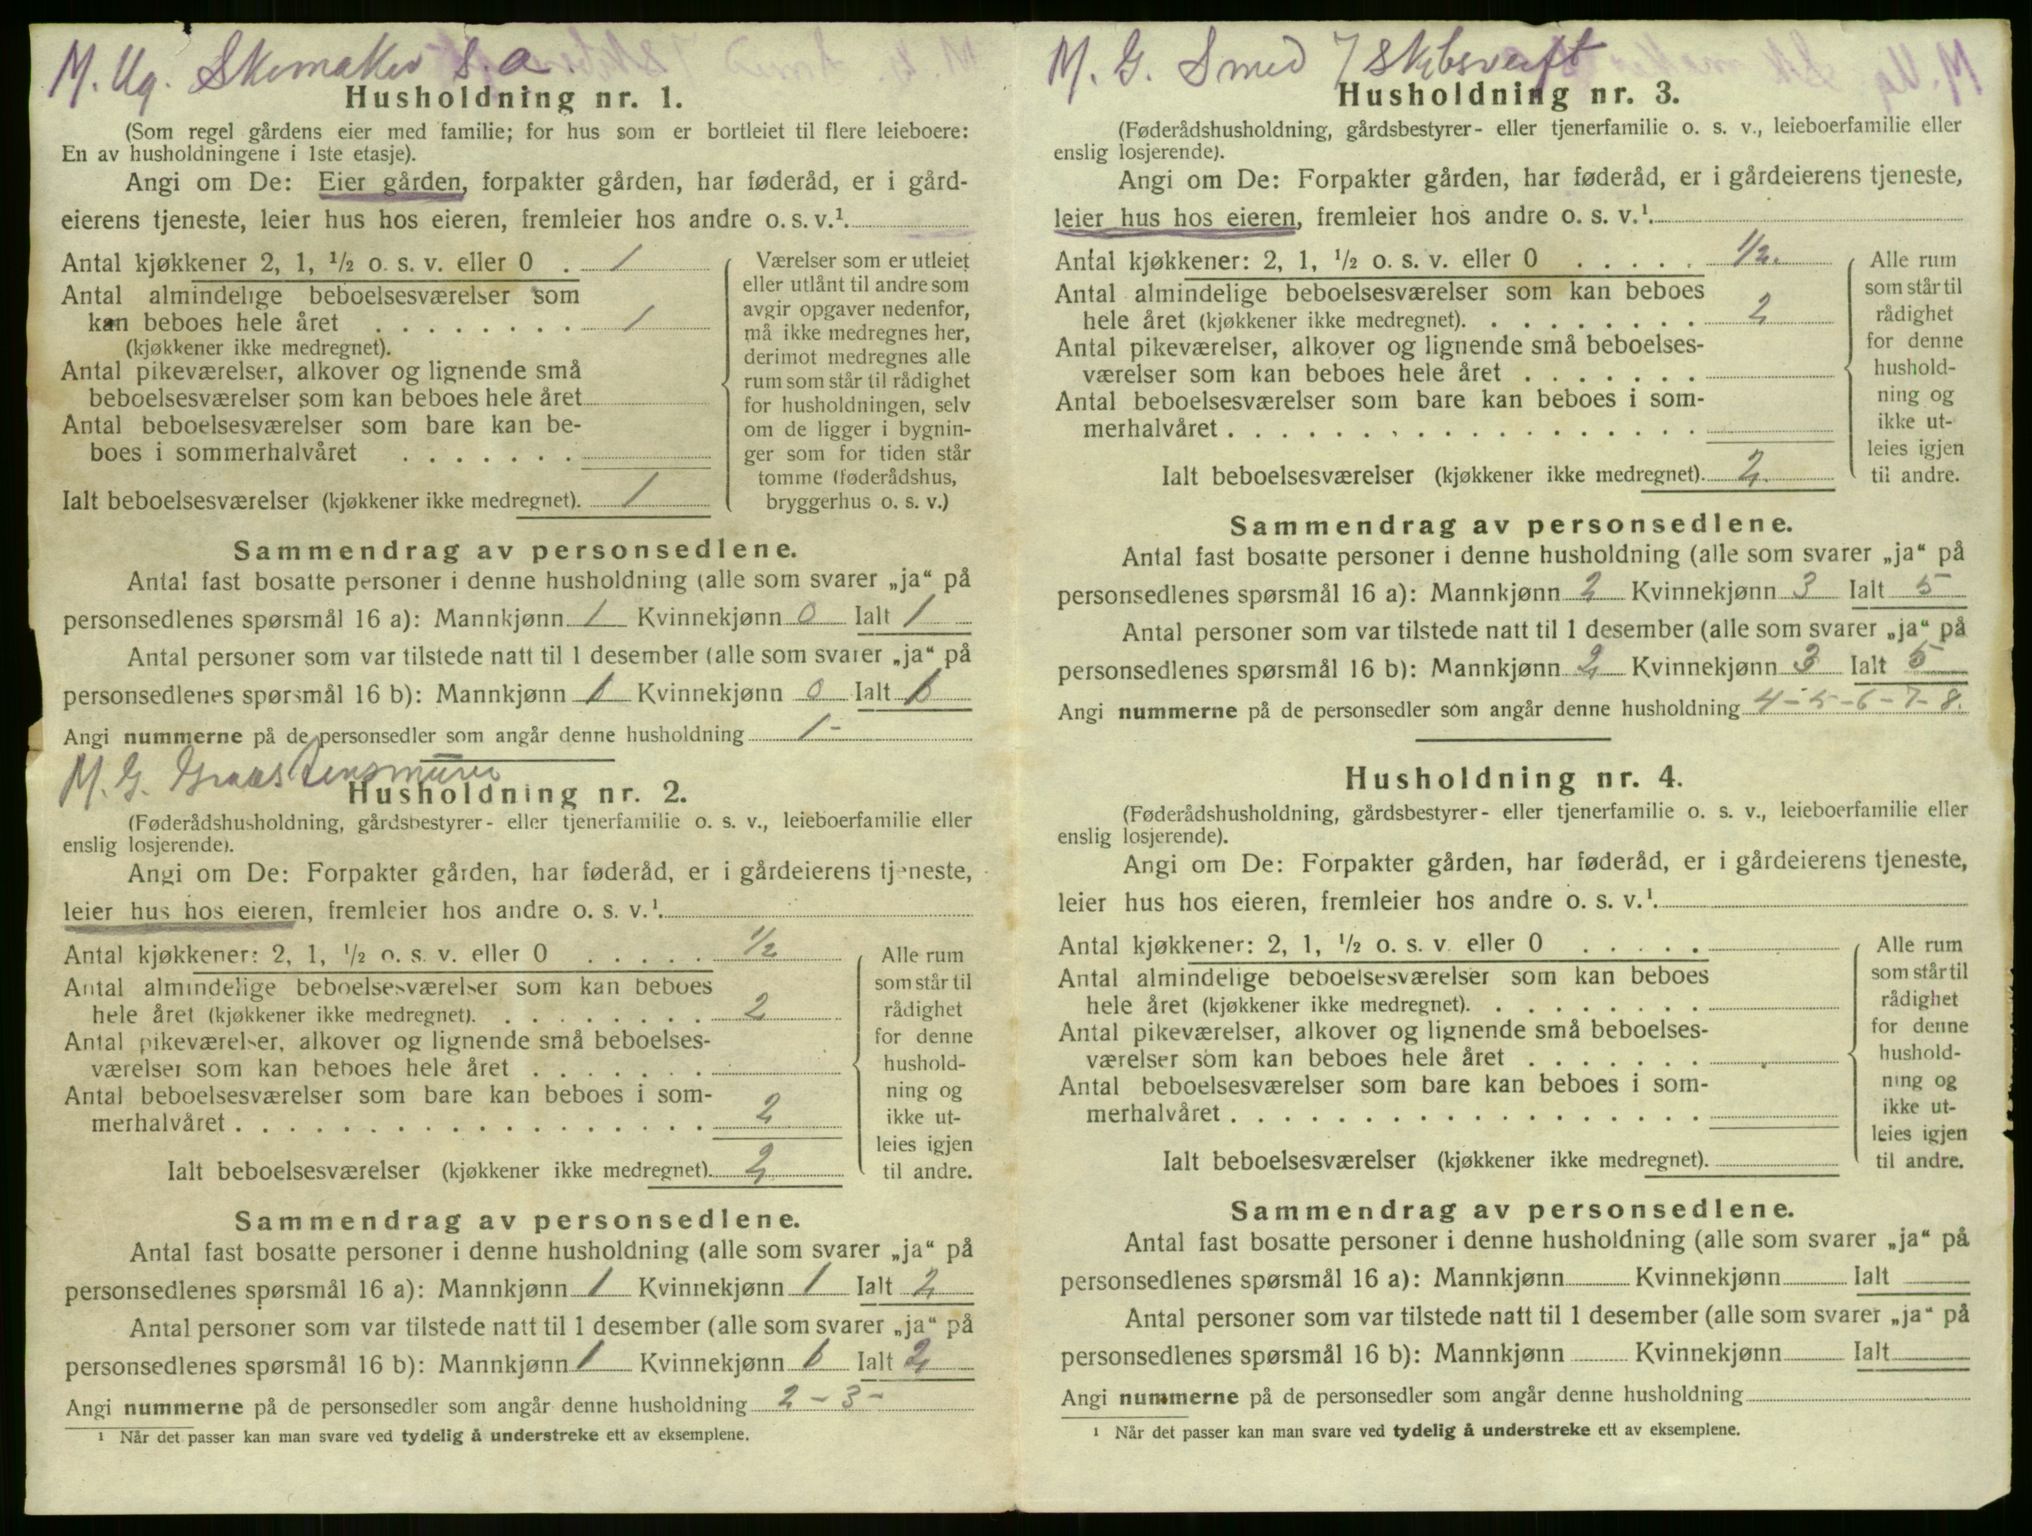 M. Ug. Skomaker s.a.
Husholdning nr. 1.
(Som regel gårdens eier med familie; for hus som er bortleiet til flere leieboere:
En av husholdningene i 1ste etasje).
Angi om De: Eier gården, forpakter gården, har føderåd, er i gård-
eierens tjeneste, leier hus hos eieren, fremleier hos andre o. s. v.¹.
Antal kjøkkener 2, 1, ½ o. s. v. eller 0 . 1
Antal almindelige beboelsesværelser som
kan beboes hele året . . . . . . . . 1
(kjøkkener ikke medregnet).
Antal pikeværelser, alkover og lignende små
beboelsesværelser som kan beboes hele året
Antal beboelsesværelser som bare kan be-
boes i sommerhalvåret . . . . . . .
Ialt beboelsesværelser (kjøkkener ikke medregnet). 1
Værelser som er utleiet
eller utlånt til andre som
avgir opgaver nedenfor,
må ikke medregnes her,
derimot medregnes alle
rum som står til rådighet
for husholdningen, selv
om de ligger i bygnin-
ger som for tiden står
tomme (føderådshus,
bryggerhus o. s. v.)
Sammendrag av personsedlene.
Antal fast bosatte personer i denne husholdning (alle som svarer „ja“ på
personsedlenes spørsmål 16 a): Mannkjønn 1 Kvinnekjønn 0 Ialt 1
Antal personer som var tilstede natt til 1 desember (alle som svarer „ja“ på
personsedlenes spørsmål 16 b): Mannkjønn 1 Kvinnekjønn 0 Ialt 1
Angi nummerne på de personsedler som angår denne husholdning 1-
M. G. Graastensmurer
Husholdning nr. 2.
(Føderådshusholdning, gårdsbestyrer- eller tjenerfamilie o. s. v., leieboerfamilie eller
enslig losjerende).
Angi om De: Forpakter gården, har føderåd, er i gårdeierens tjeneste,
leier hus hos eieren, fremleier hos andre o. s. v.¹.
Antal kjøkkener: 2, 1, ½ o. s. v. eller 0 . . . . . 1/2
Antal almindelige beboelsesværelser som kan beboes
hele året (kjøkkener ikke medregnet). . . . . . . . . 2
Antal pikeværelser, alkover og lignende små beboelses-
værelser som kan beboes hele året . . . . . . .
Antal beboelsesværelser som bare kan beboes i som-
merhalvåret . . . . . . . . . . . . . . . . . . 2
Ialt beboelsesværelser (kjøkkener ikke medregnet). 2
Alle rum
som står til
rådighet
for denne
hushold-
ning og
ikke ut-
leies igjen
til andre.
Sammendrag av personsedlene.
Antal fast bosatte personer i denne husholdning (alle som svarer „ja“ på
personsedlenes spørsmål 16 a): Mannkjønn 1 Kvinnekjønn 1 Ialt 2
Antal personer som var tilstede natt til 1 desember (alle som svarer „ja“ på
personsedlenes spørsmål 16 b): Mannkjønn 1 Kvinnekjønn 1 Ialt 2
Angi nummerne på de personsedler som angår denne husholdning 2-3-
¹ Når det passer kan man svare ved tydelig å understreke ett av eksemplene.
M. G. Smed / Skibsverft
Husholdning nr. 3.
(Føderådshusholdning, gårdsbestyrer- eller tjenerfamilie o. s. v., leieboerfamilie eller
enslig losjerende).
Angi om De: Forpakter gården, har føderåd, er i gårdeierens tjeneste,
leier hus hos eieren, fremleier hos andre o. s. v.¹.
Antal kjøkkener: 2, 1, ½ o. s. v. eller 0 . . . . . 1/2.
Antal almindelige beboelsesværelser som kan beboes
hele året (kjøkkener ikke medregnet). . . . . . . . . 2
Antal pikeværelser, alkover og lignende små beboelses-
værelser som kan beboes hele året . . . . . . .
Antal beboelsesværelser som bare kan beboes i som-
merhalvåret . . . . . . . . . . . . . . . . . .
Ialt beboelsesværelser (kjøkkener ikke medregnet). 2.
Alle rum
som står til
rådighet
for denne
hushold-
ning og
ikke ut-
leies igjen
til andre.
Sammendrag av personsedlene.
Antal fast bosatte personer i denne husholdning (alle som svarer „ja“ på
personsedlenes spørsmål 16 a): Mannkjønn 2 Kvinnekjønn 3 Ialt 5
Antal personer som var tilstede natt til 1 desember (alle som svarer „ja“ på
personsedlenes spørsmål 16 b): Mannkjønn 2 Kvinnekjønn 3 Ialt 5
Angi nummerne på de personsedler som angår denne husholdning 4-5-6-7-8.
Husholdning nr. 4.
(Føderådshusholdning, gårdsbestyrer- eller tjenerfamilie o. s. v., leieboerfamilie eller
enslig losjerende).
Angi om De: Forpakter gården, har føderåd, er i gårdeierens tjeneste,
leier hus hos eieren, fremleier hos andre o. s. v.¹.
Antal kjøkkener: 2, 1, ½ o. s. v. eller 0 . . . . .
Antal almindelige beboelsesværelser som kan beboes
hele året (kjøkkener ikke medregnet). . . . . . . . .
Antal pikeværelser, alkover og lignende små beboelses-
værelser som kan beboes hele året . . . . . . .
Antal beboelsesværelser som bare kan beboes i som-
merhalvåret . . . . . . . . . . . . . . . . . .
Ialt beboelsesværelser (kjøkkener ikke medregnet).
Alle rum
som står til
rådighet
for denne
hushold-
ning og
ikke ut-
leies igjen
til andre.
Sammendrag av personsedlene.
Antal fast bosatte personer i denne husholdning (alle som svarer „ja“ på
personsedlenes spørsmål 16 a): Mannkjønn Kvinnekjønn Ialt
Antal personer som var tilstede natt til 1 desember (alle som svarer „ja“ på
personsedlenes spørsmål 16 b): Mannkjønn Kvinnekjønn Ialt
Angi nummerne på de personsedler som angår denne husholdning
¹ Når det passer kan man svare ved tydelig å understreke ett av eksemplene.